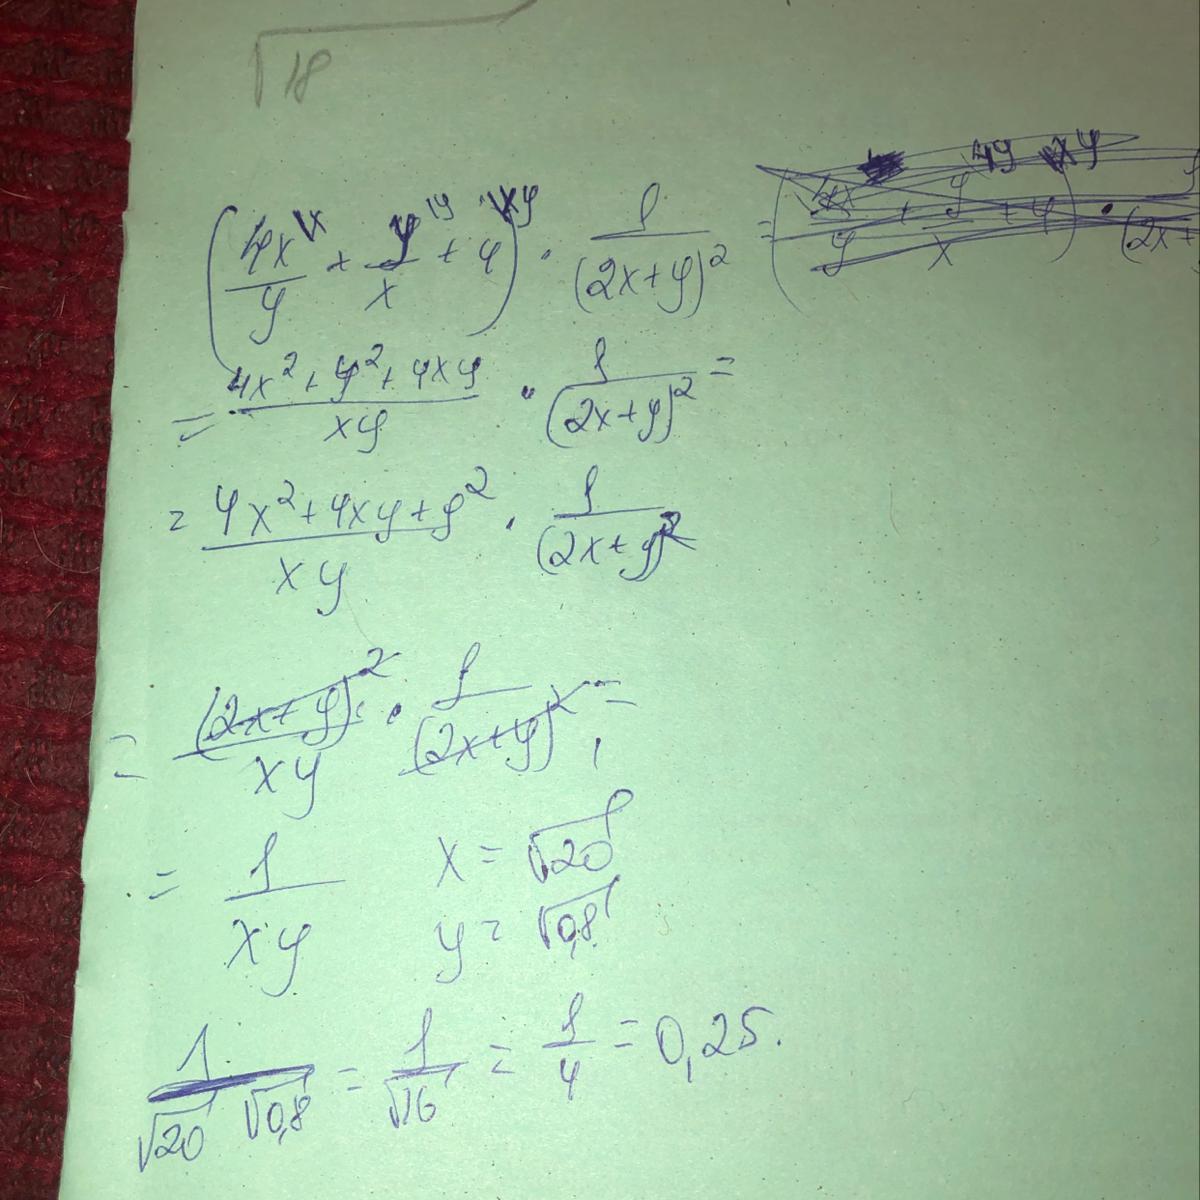 √18
(4x/y + y/x + 4) · 1/(2x+y)² =
= (4x² + y² + 4xy)/xy · 1/(2x+y)² =
= (4x² + 4xy + y²)/xy · 1/(2x+y)²
= (2x+y)²/xy · 1/(2x+y)² =
= 1/xy x = √20
y = √0,8
1/√20 √0,8 = 1/√16 = 1/4 = 0,25.